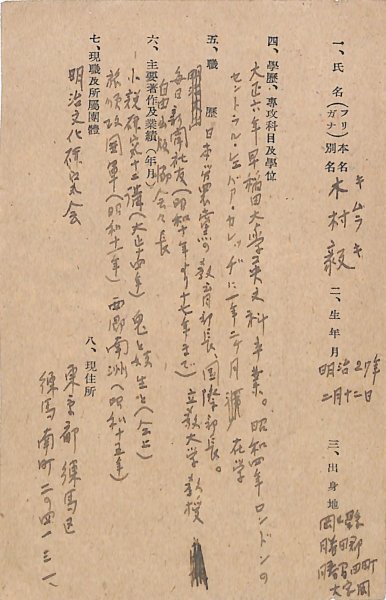 一、氏名(フリガナ) 本名 別名 キムラ キ 木村毅
二、生年月 明治27年 二月十二日
三、出身地 岡山縣 勝田郡 勝田町 大字
四、學歷、專攻科目及學位
大正六年早稲田大學英文科卒業。昭和四年ロンドンの
セントラル・レバア・カレッヂに一年二ケ月 在学
五、職歷 日本労農党の教育部長、国際部長。
毎日新聞社友(昭和十年より十七年まで) 立教大学教授
自由出版協会々長
六、主要著作及業績(年月)
小説研究十二講(大正十四年) 兎と妓生と(仝上)
旅順攻囲軍(昭和十一年) 西郷南洲(昭和十五年)
七、現職及所屬團體
明治文化研究会
八、現住所
東京都 練馬区
練馬南町二ノ四一三一